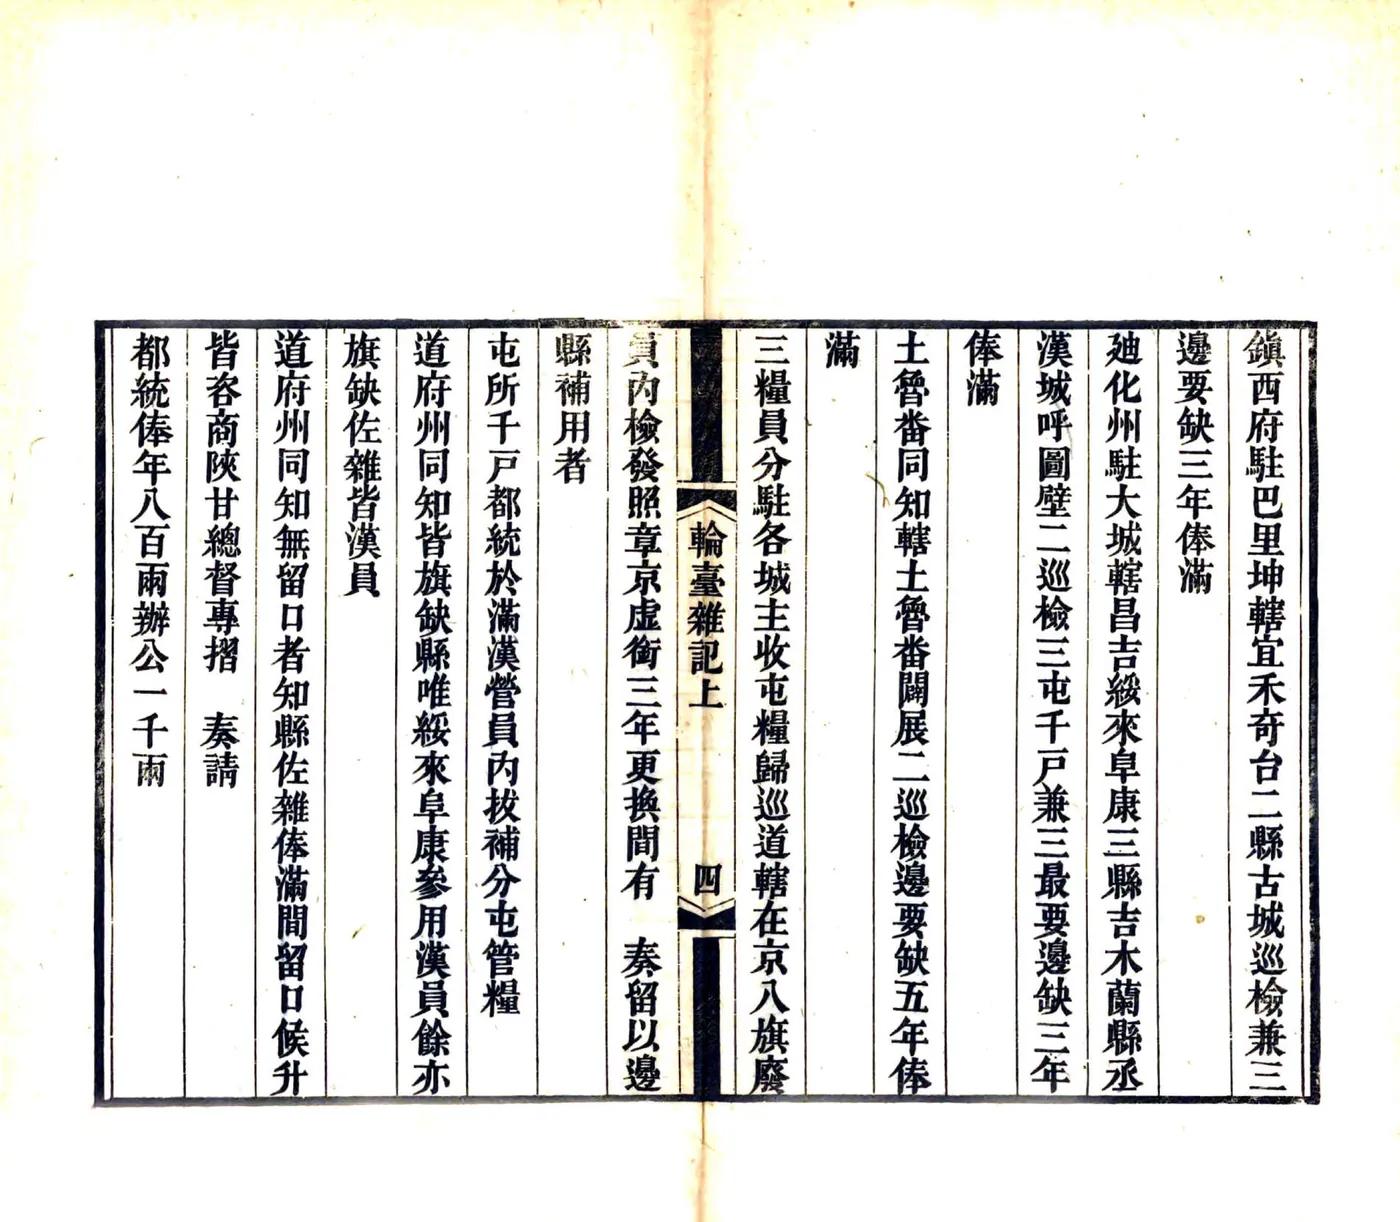 鎮西府駐巴里坤轄宜禾奇台二縣古城巡檢兼三
邊要缺三年俸滿
廸化州駐大城轄昌吉綏來阜康三縣吉木蘭縣丞
漢城呼圖壁二巡檢三屯千戸兼三最要邊缺三年
俸滿
土魯番同知轄土魯番闢展二巡檢邊要缺五年俸
滿
三糧員分駐各城主收屯糧歸巡道轄在京八旗廢
輪臺雜記上
四
員內檢發照章京虛銜三年更換間有　奏留以邊
縣補用者
屯所千戸都統於滿漢營員內拔補分屯管糧
道府州同知皆旗缺縣唯綏來阜康參用漢員餘亦
旗缺佐雜皆漢員
道府州同知無留口者知縣佐雜俸滿間留口候升
皆咨商陝甘總督專摺　奏請
都統俸年八百兩辦公一千兩